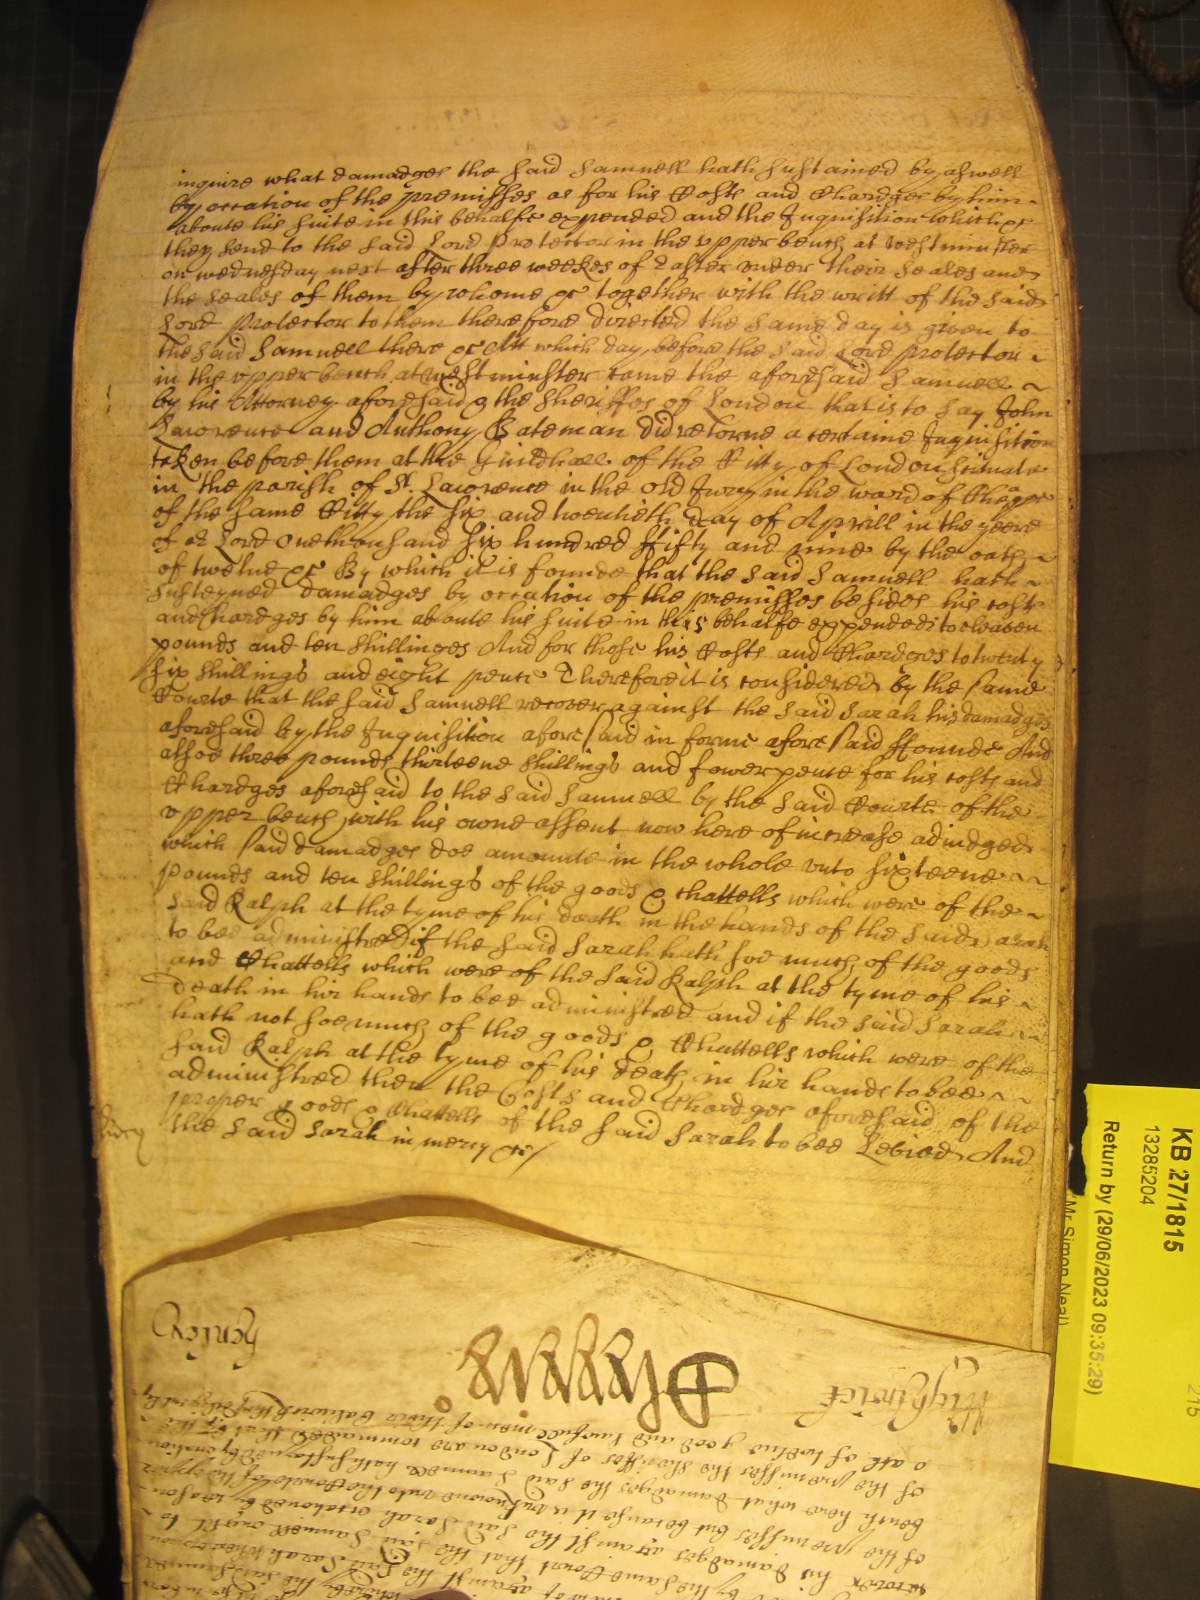 inquire what damadges the said Samuell hath sustained by aswell
by occation of the premisses as for his Costs and Chardges by him
aboute his suite in this behalfe expended and the Inquisition which &c
they send to the said Lord Protector in the vpper bench at westminster
on wednesday next after three weekes of Easter vnder their seales and
the seales of them by whome &c together with the writt of the said
Lord Protector to them therefore directed the same day is given to
the said Samuell there &c Att which day before the said Lord protector
in the vpper bench at westminster came the aforesaid Samuell
by his Attorney aforesaid & the Sheriffes of London that is to say John
Lawrence and Anthony Bateman did retorne a certaine Inquisition
taken before them at the Guildhall of the Citty of London scituate
in the parish of St. Lawrence in the old Jury in the ward of Cheape
of the same Citty the six and twentieth day of Aprill in the yeere
of or Lord One thousand six hundred ffifty and nine by the oath
of twelve &c By which it is founde that the said Samuell hath
susteyned damadges by occation of the premisses besides his costs
and Chardges by him aboute his suite in this behalfe expended to eleaven
pounds and ten shillinges And for those his Costs and Chardges to twenty
six shillings and eight pence Therefore it is considered by the same
Courte that the said Samuell recover against the said Sarah his damadges
aforesaid by the Inquisition aforesaid in forme aforesaid ffounde And
alsoe three pounds thirteene shillings and fower pence for his costs and
Chardges aforesaid to the said Samuell by the said Courte of the
vpper bench with his owne assent now here of increase adiudged
which said damadges doe amounte in the whole vnto sixteene
pounds and ten shillings of the goods & chattells which were of the
said Ralph at the tyme of his death in the hands of the said Sarah
to bee administred if the said Sarah hath soe much of the goods
and Chattells which were of the said Ralph at the tyme of his
death in hir hands to bee administred and if the said Sarah
hath not soe much of the goods & Chattells which were of the
said Ralph at the tyme of his death in hir hands to bee
administred then the Costs and Chardges aforesaid of the
proper goods & Chattells of the said Sarah to bee Levied And
the said Sarah in mercy &c
mercy
KB 27/1815
13285204
Return by (29/06/2023 09:35:29)
Mr Simon Neal
215
henley
Wightwick
oath of twelve good and lawfull men of their Bailiwick they diligently
of the premisses the sheriffes of London are commanded that
bench here what damadges the said Samuell hath susteyned by occation
of the premisses but because it is vnknowne vnto the
his damadges against the said Sarah occationed by reason
by the same Court that the said Samuell ought to
against the said Sarah